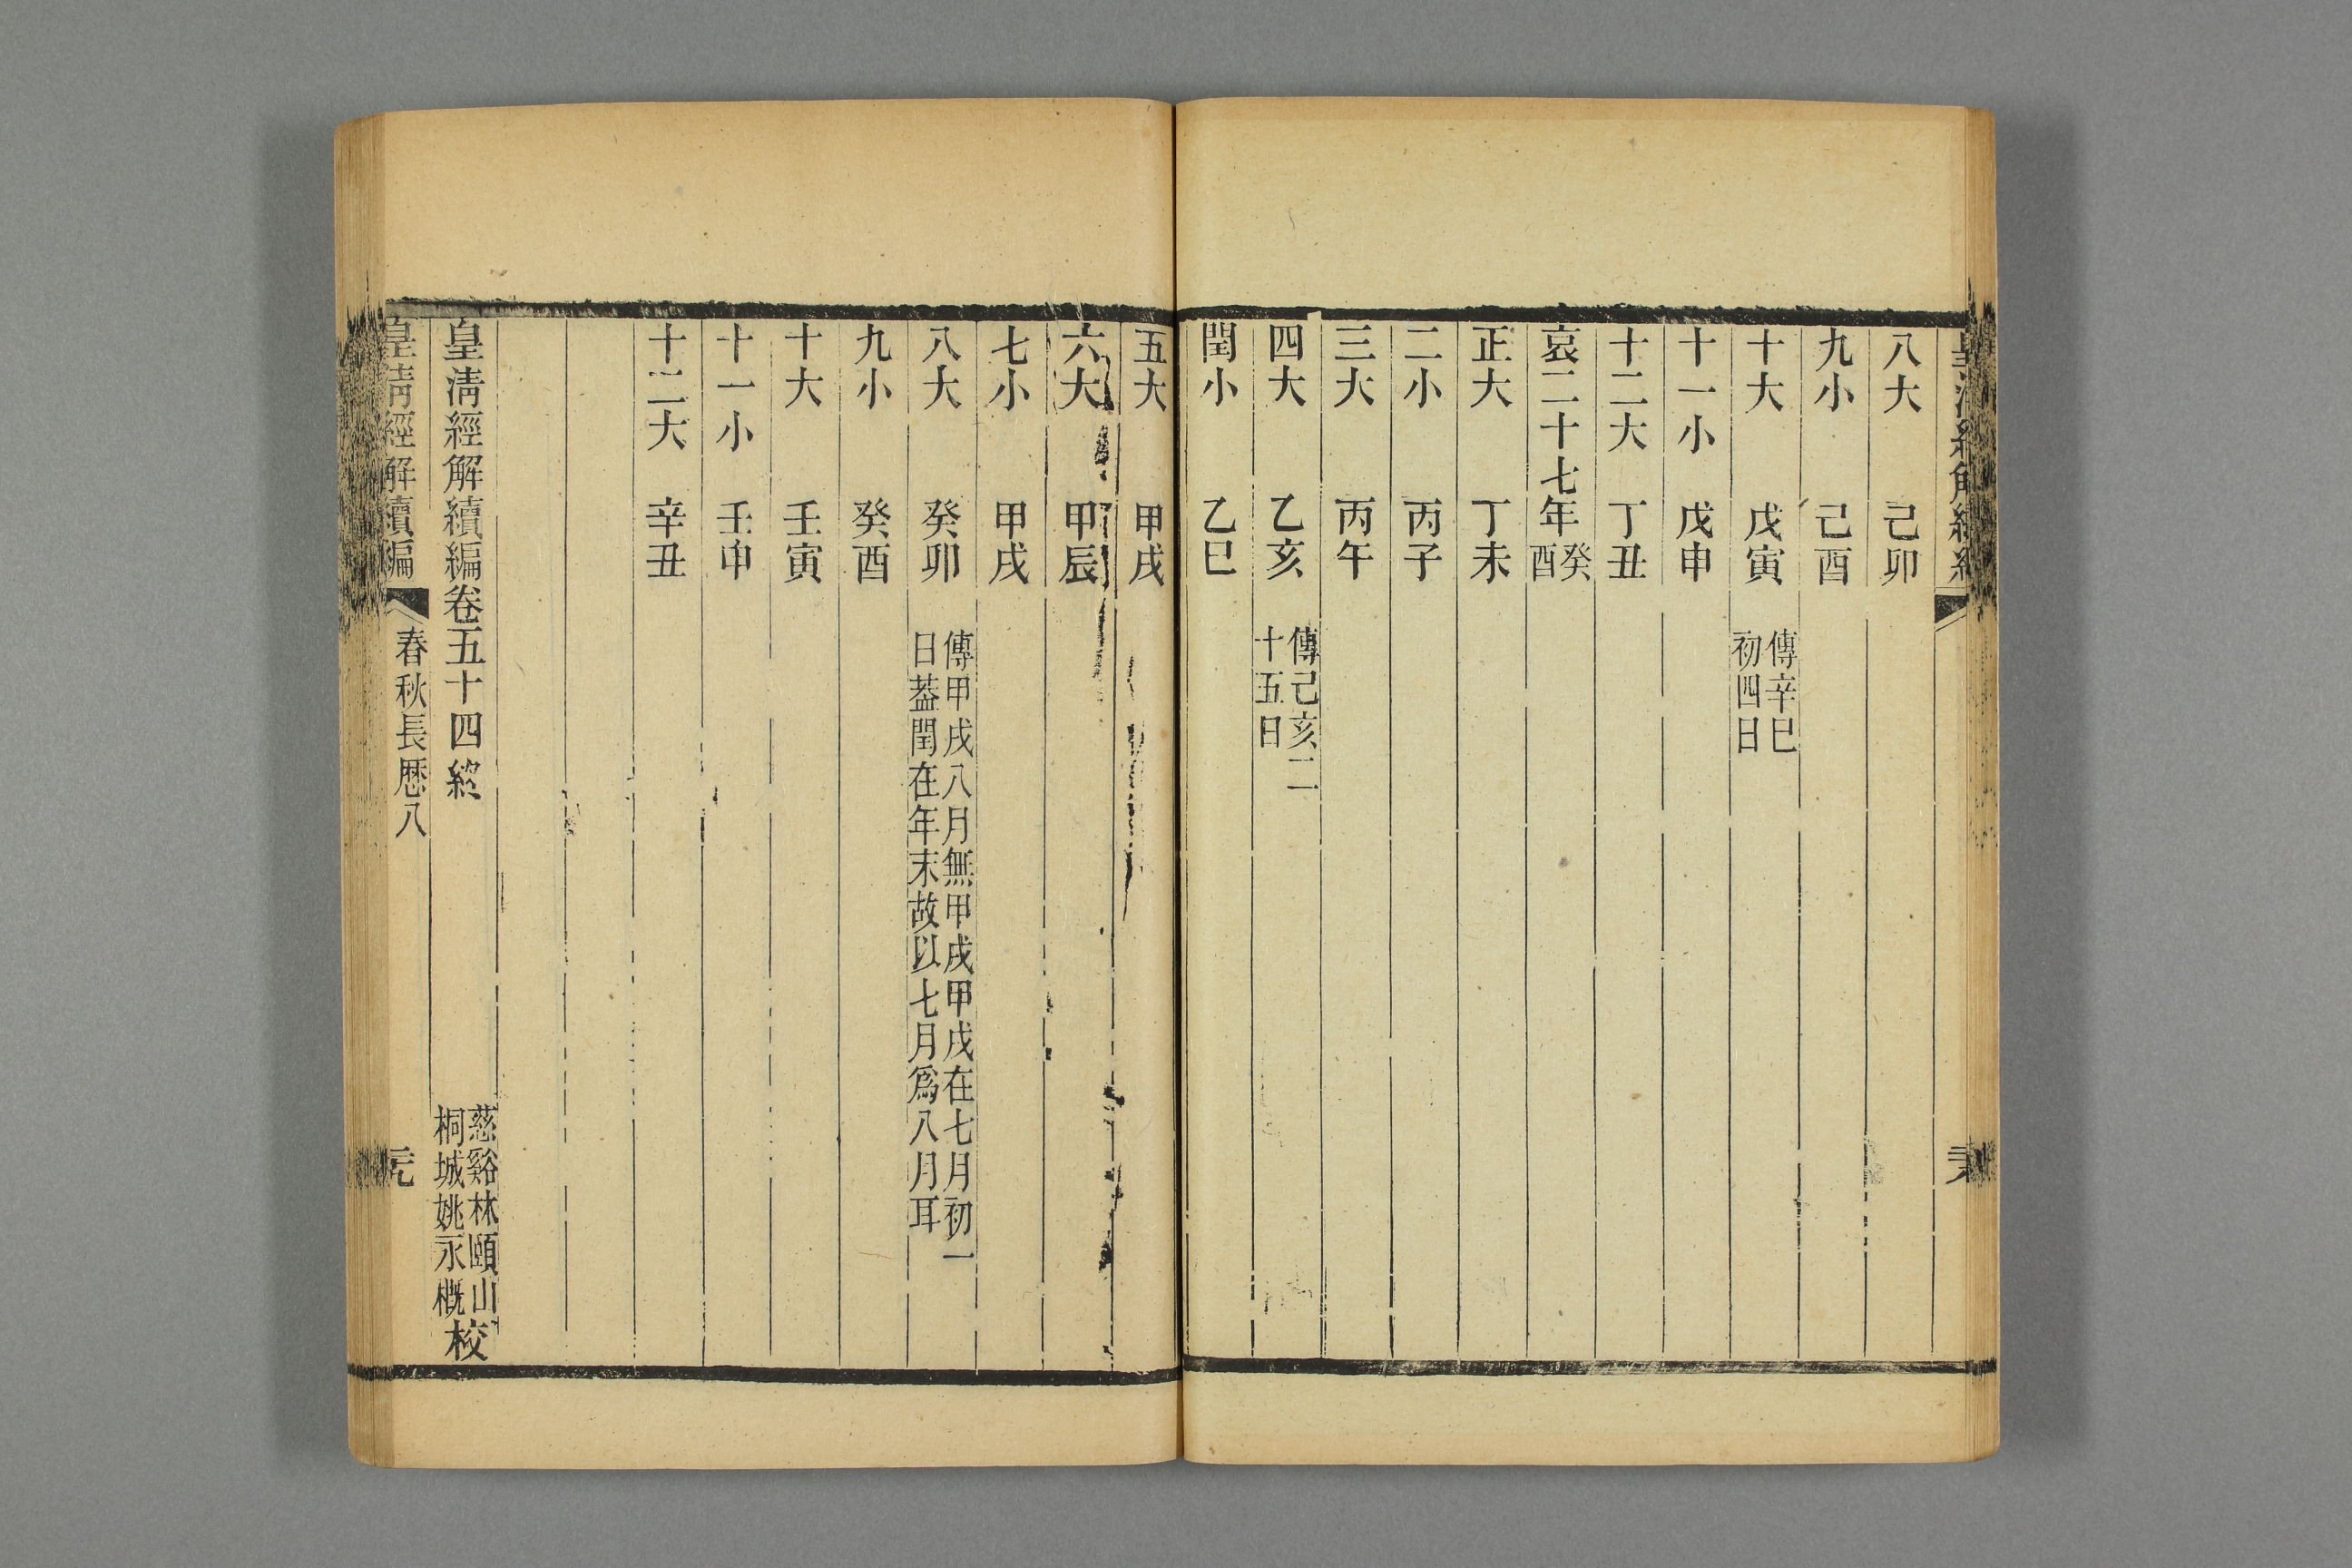 八大　己卯
九小　己酉
十大　戊寅　傳辛巳初四日
十一小　戊申
十二大　丁丑
哀二十七年癸酉
正大　丁未
二小　丙子
三大　丙午
四大　乙亥　傳己亥二十五日
閏小　乙巳
五大　甲戌
六大　甲辰
七小　甲戌
八大　癸卯　傳甲戌八月無甲戌甲戌在七月初一日葢閏在年末故以七月爲八月耳
九小　癸酉
十大　壬寅
十一小　壬申
十二大　辛丑
皇淸經解續編卷五十四終　慈谿林頤山桐城姚永概校
皇淸經解續編　春秋長歷八